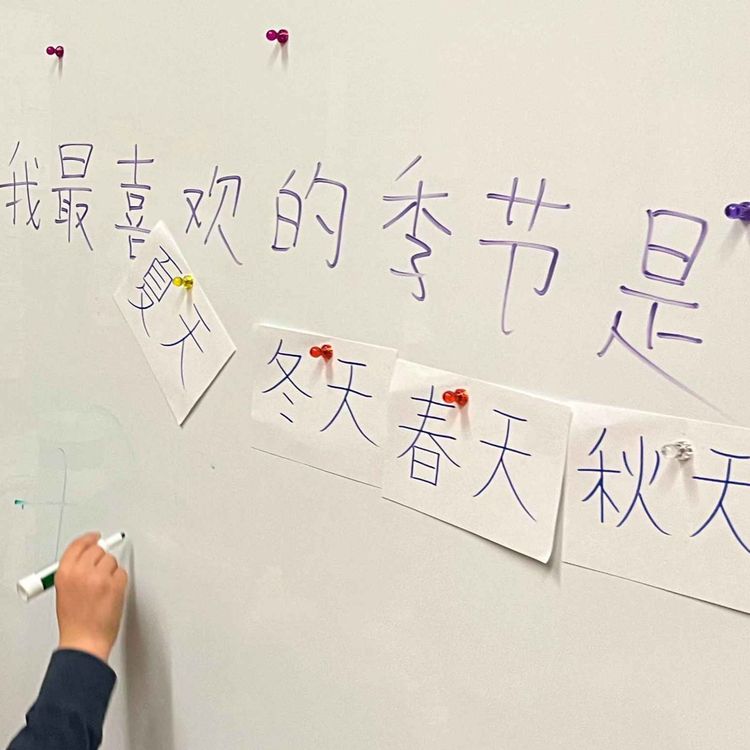 我最喜欢的季节是
夏天
冬天
春天
秋天